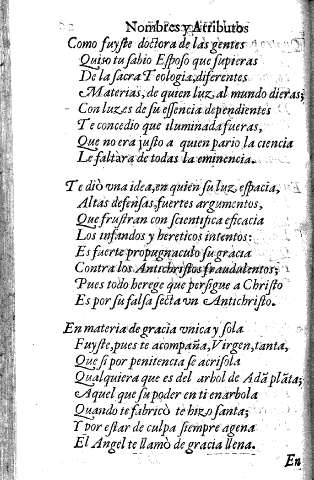 Nombres y Atributos
Como fuyste doctora de las gentes
Quiso tu sabio Esposo que supieras
De la sacra Teologia, diferentes
Materias, de quien luz al mundo dieras;
Con luzes de su essencia dependientes
Te concedio que iluminada fueras,
Que no era justo a quien pario la ciencia
Le faltàra de todas la eminencia.
Te diò vna idea, en quien su luz espacia,
Altas defensas, fuertes argumentos,
Que frustran con scientifica eficacia
Los infandos y hereticos intentos:
Es fuerte propugnaculo su gracia
Contra los Antichristos fraudulentos;
Pues todo herege que persigue a Christo
Es por su falsa secta vn Antichristo.
En materia de gracia vnica y sola
Fuyste, pues te acompaña, Virgen, tanta,
Que si por penitencia se acrisola
Qualquiera que es del arbol de Adã plãta;
Aquel que su poder en ti enarbola
Quando te fabricò te hizo santa;
Y por estar de culpa siempre agena
El Angel te llamò de gracia llena.
En